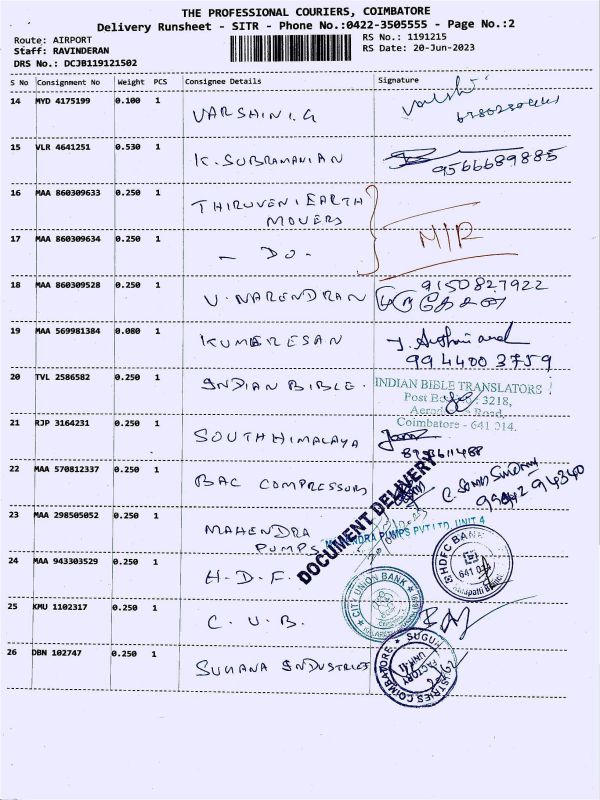 THE PROFESSIONAL COURIERS, COIMBATORE
Delivery Runsheet - SITR - Phone No.:0422-3505555 - Page No.:2
Route: AIRPORT
RS No.: 1191215
Staff: RAVINDERAN
RS Date: 20-Jun-2023
DRS No.: DCJB119121502
S No Consignment No Weight PCS Consignee Details Signature
14 MYD 4175199 0.100 1 VARSHINI.G
15 VLR 4641251 0.530 1 K. SUBRAMANIAN 9566689885
16 MAA 860309633 0.250 1 THIRUVENI EARTH
MOVERS
17 MAA 860309634 0.250 1 - DO - N/R
18 MAA 860309528 0.250 1 V. NARENDRAN 9150827922
19 MAA 569981384 0.080 1 KUMARESAN
9944003759
20 TVL 2586582 0.250 1 INDIAN BIBLE. INDIAN BIBLE TRANSLATORS
Post Box : 3218,
Road,
Coimbatore - 641 014.
21 RJP 3164231 0.250 1 SOUTH HIMALAYA
22 MAA 570812337 0.250 1 BAC COMPRESSORS
DOCUMENT DELIVERY
23 MAA 298505052 0.250 1 MAHENDRA
PUMPS PUMPS PVT LTD, UNIT 4
24 MAA 943303529 0.250 1 H.D.F. HDFC BANK
641 014
25 KMU 1102317 0.250 1 C.U.B. CITY UNION BANK
26 DBN 102747 0.250 1 SUGUNA INDUSTRIES
COIMBATORE
FACTORY